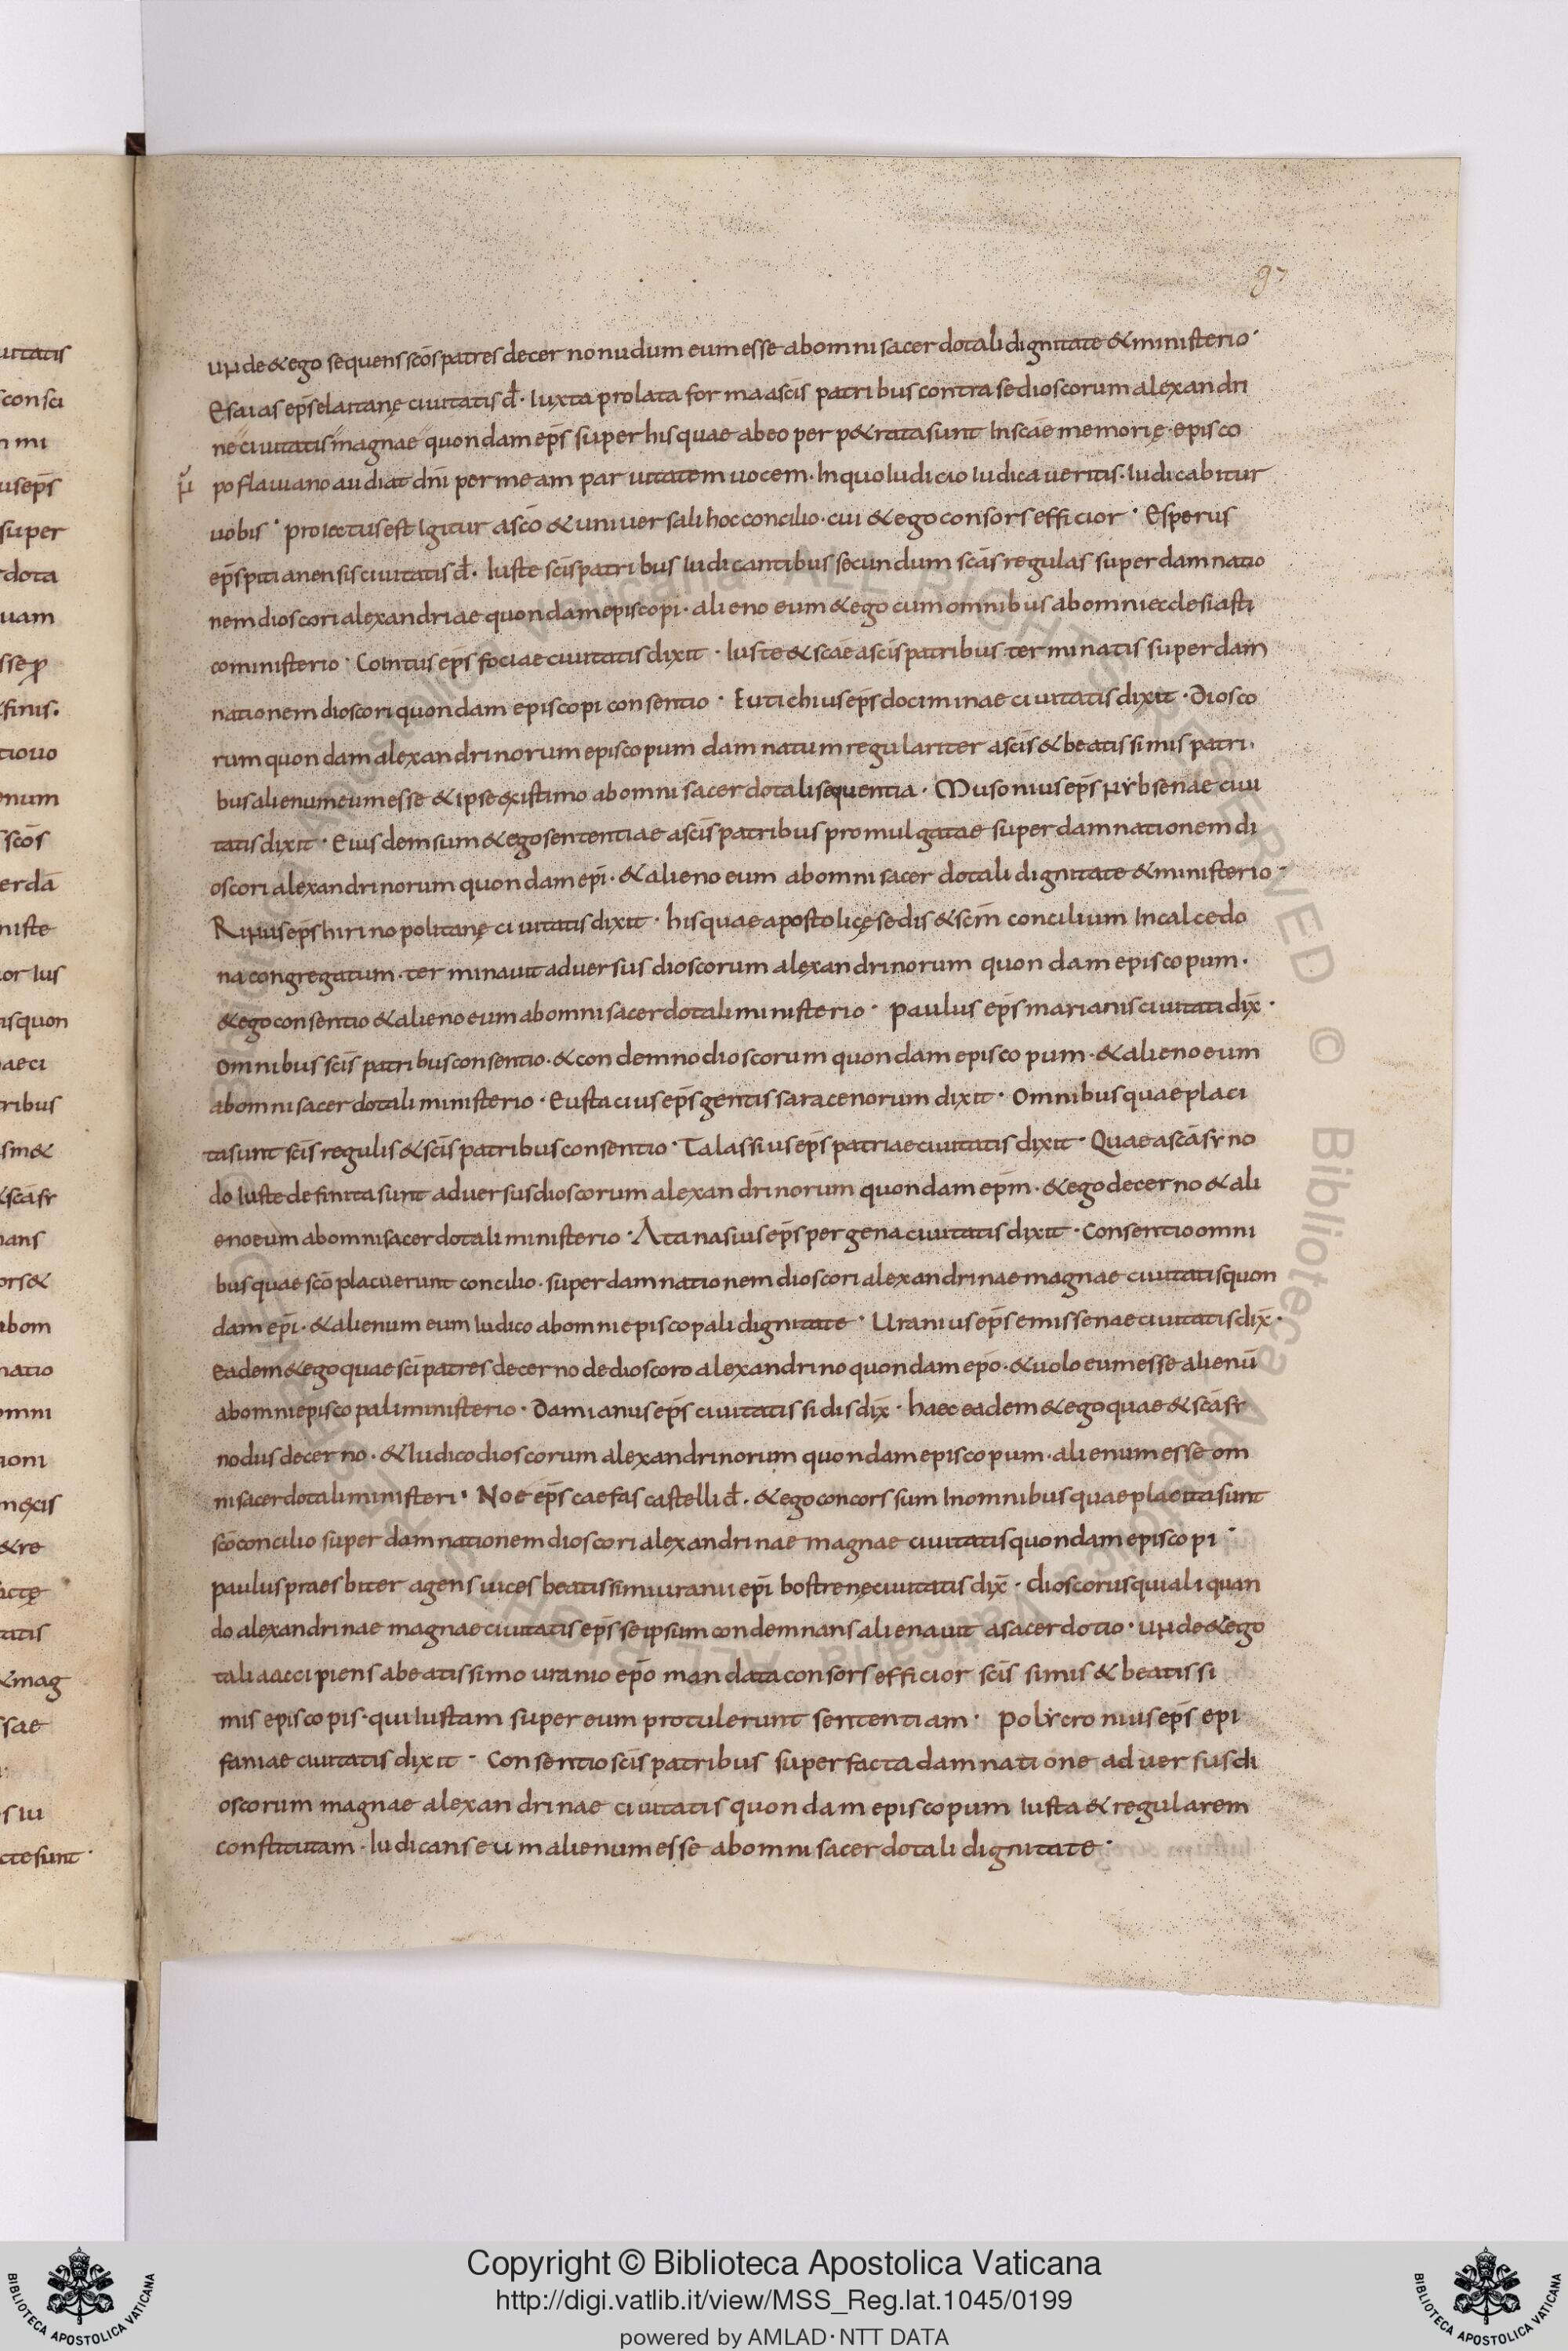 97
unde & ego sequens scōs patres decerno nudum eum esse ab omni sacerdotali dignitate & ministerio·
Esaias ep̄s elaitanę ciuitatis d̄· Iuxta prolata forma a scīs patribus contra se dioscorum alexandri
ne ciuitatis magnae quondam ep̄s super his quae ab eo perp&rata sunt In scāe memorię episco
po flauiano audiat dn̄i per meam paruitatem uocem· In quo Iudicio Iudicaueritis· Iudicabitur
uobis· proiectus est Igitur a scō & uniuersali hoc concilio· cui & ego consors efficior· Esperus
ep̄s pitianensis ciuitatis d̄· Iuste scīs patribus Iudicantibus secundum scās regulas super damnatio
nem dioscori alexandriae quondam episcopi· alieno eum & ego cum omnibus ab omni ecclesiasti
co ministerio· Cointus ep̄s fociae ciuitatis dixit· Iuste & scāe a scīs patribus terminatis super dam
nationem dioscori quondam episcopi consentio· Eutichius ep̄s dociminae ciuitatis dixit· Diosco
rum quondam alexandrinorum episcopum damnatum regulariter a scīs & beatissimis patri·
bus alienum eum esse & ipse exīstimo ab omni sacerdotali sequentia· Musonius ep̄s nẏbsenae ciui
tatis dixit· Eiusdem sum & ego sententiae a scīs patribus promulgatae super damnationem di
oscori alexandrinorum quondam ep̄i· & alieno eum ab omni sacerdotali dignitate & ministerio·
Rinus ep̄s hirinopolitanę ciuitatis dixit· his quae apostolicę sedis & scm̄ concilium In calcedo
na congregatum· terminauit aduersus dioscorum alexandrinorum quondam episcopum·
& ego consentio & alieno eum ab omni sacerdotali ministerio· paulus ep̄s marianis ciuitati dix̄·
omnibus scīs patribus consentio· & condemno dioscorum quondam episcopum· & alieno eum
ab omni sacerdotali ministerio· Eustacius ep̄s gentis saracenorum dixit· Omnibus quae placi
ta sunt scīs regulis & scīs patribus consentio· Talassius ep̄s patriae ciuitatis dixit· Quae a scā sẏno
do Iuste definita sunt aduersus dioscorum alexandrinorum quondam ep̄m· & ego decerno & ali
eno eum ab omni sacerdotali ministerio· Atanasius ep̄s pergena ciuitatis dixit· Consentio omni
bus quae scō placuerunt concilio· super damnationem dioscori alexandrinae magnae ciuitatis quon
dam ep̄i· & alienum eum Iudico ab omni episcopali dignitate· Uranius ep̄s emissenae ciuitatis dix̄·
Eadem & ego quae scī patres decerno de dioscoro alexandrino quondam ep̄o· & uolo eum esse alienū
ab omni episcopali ministerio· Damianus ep̄s ciuitatis sidis dix̄· haec eadem & ego quae & scā sẏ
nodus decerno· & Iudico dioscorum alexandrinorum quondam episcopum· alienum esse om
ni sacerdotali ministeri· Noe ep̄s caefas castelli d̄· & ego concors sum In omnibus quae placita sunt
scō concilio super damnationem dioscori alexandrinae magnae ciuitatis quondam episcopi·
paulus praesbiter agens uices beatissimi uranii ep̄i bostrenę ciuitatis dix̄· dioscorus qui aliquan
do alexandrinae magnae ciuitatis ep̄s se ipsum condemnans alienauit a sacerdotio· unde & ego
talia accipiens a beatissimo uranio ep̄o mandata consors efficior scīssimis & beatissi
mis episcopis· qui Iustam super eum protulerunt sententiam· polẏcronius ep̄s epi
faniae ciuitatis dixit· Consentio scīs patribus super facta damnatione aduersus di
oscorum magnae alexandrinae ciuitatis quondam episcopum Iusta & regularem
constitutam· Iudicans eum alienum esse ab omni sacerdotali dignitate·
Copyright © Biblioteca Apostolica Vaticana
http://digi.vatlib.it/view/MSS_Reg.lat.1045/0199
powered by AMLAD·NTT DATA